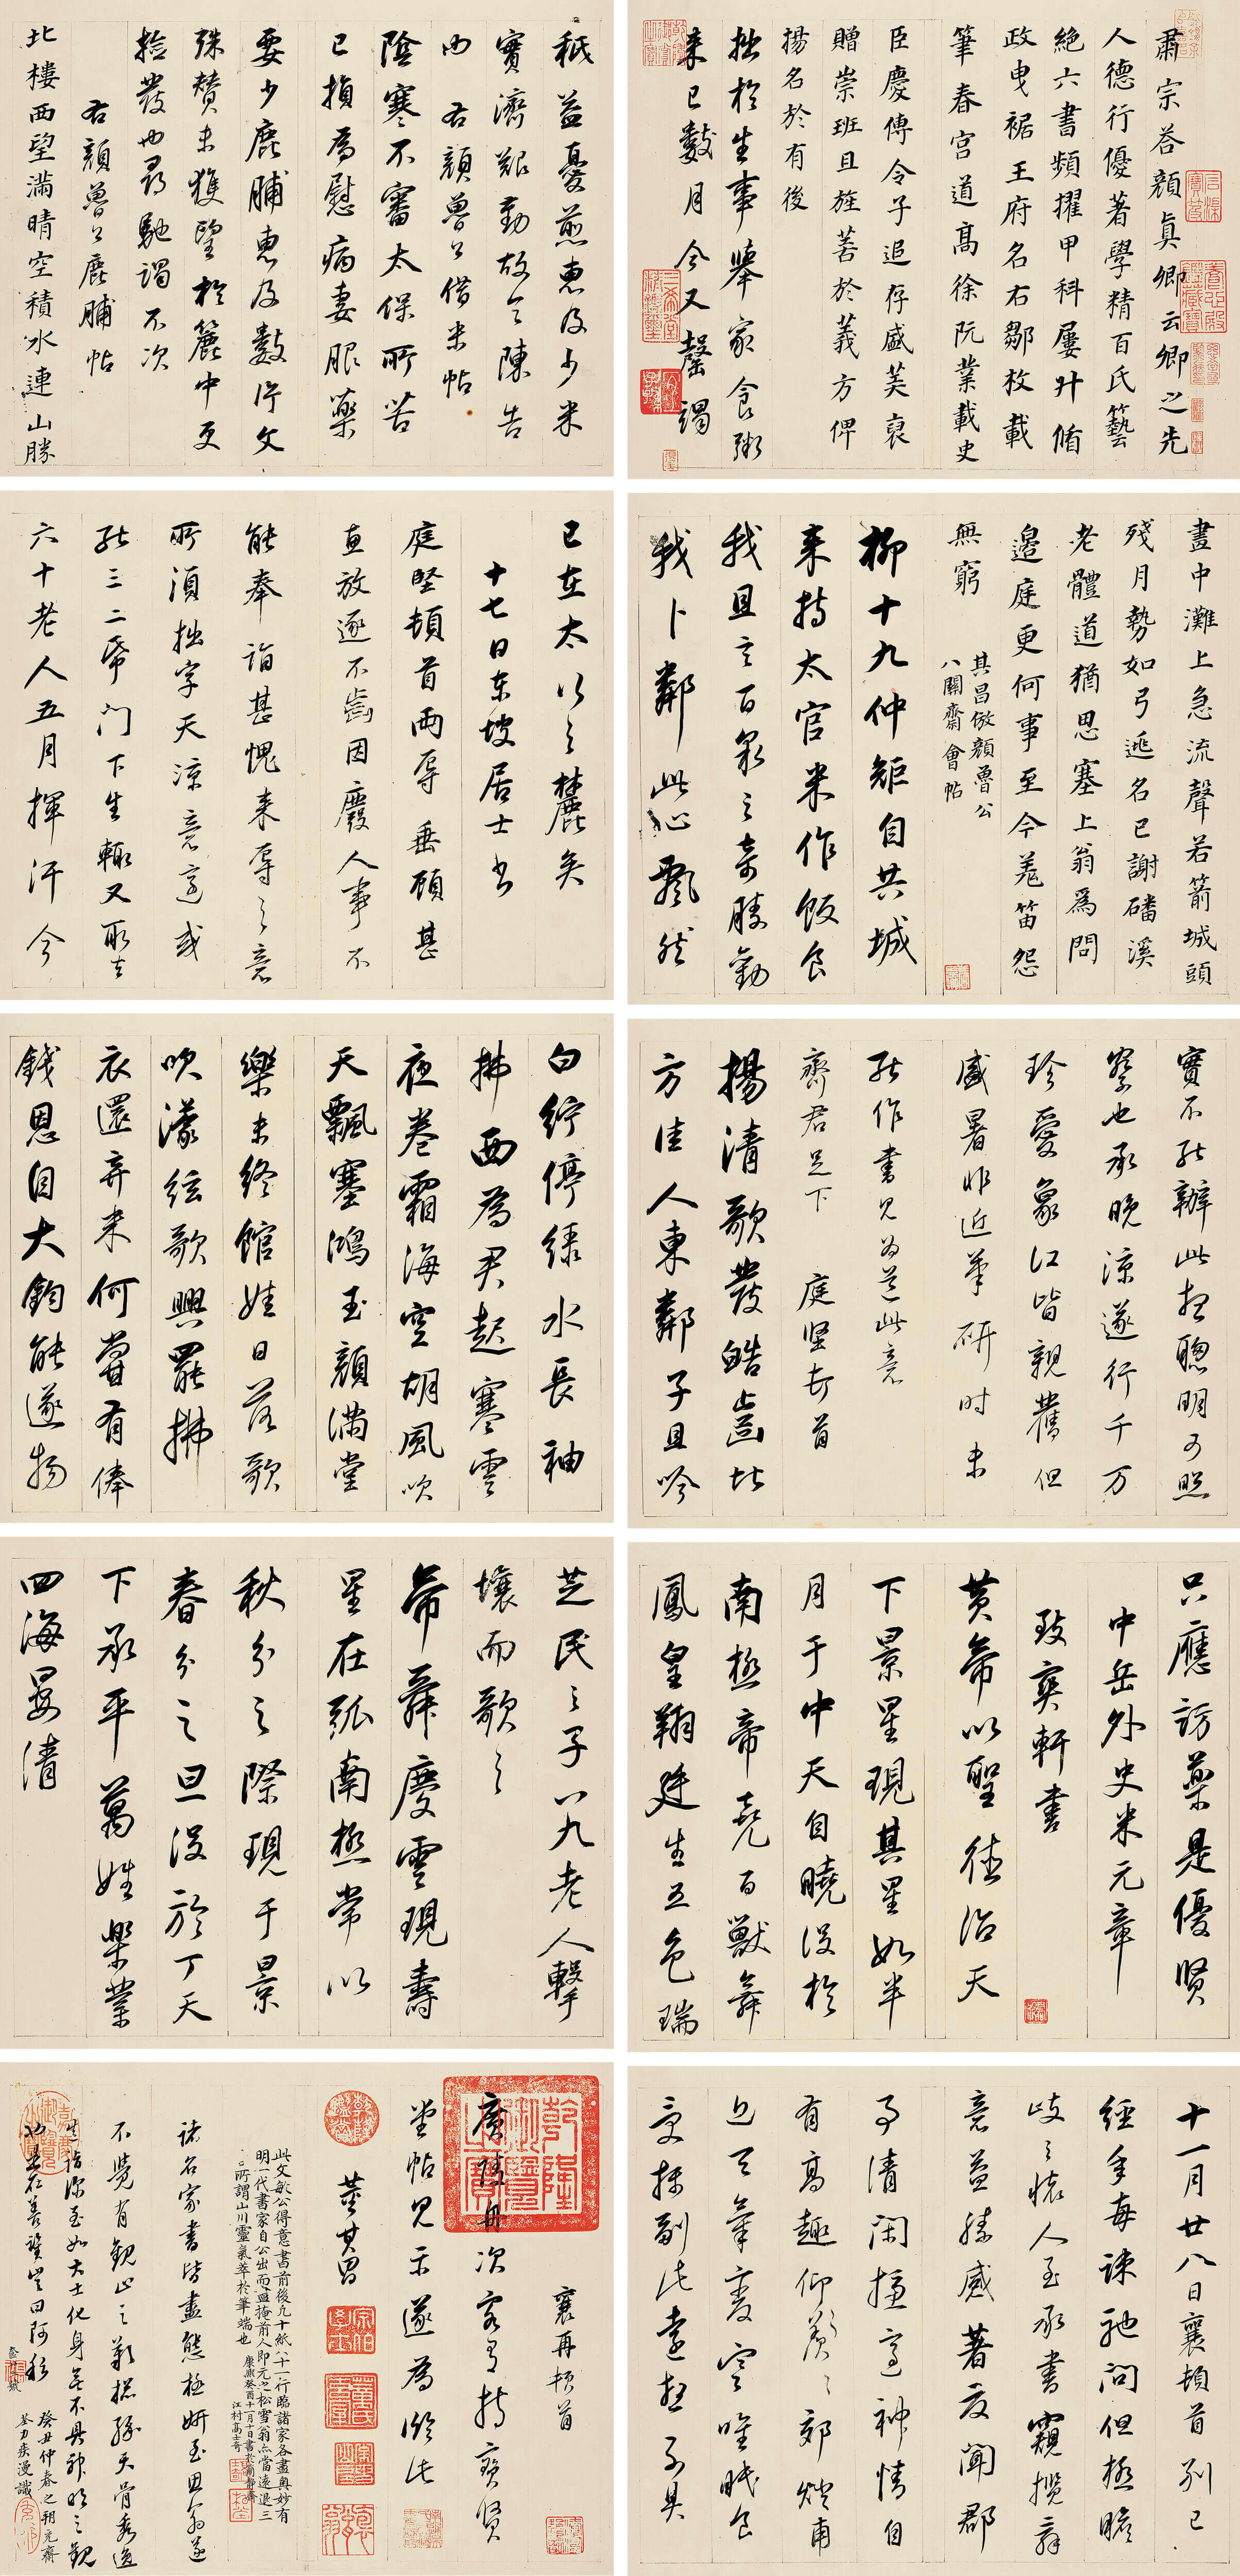 肅宗答顏真卿云卿之先
人德行優著學精百氏藝
絕六書頻擢甲科屢升循
政曳裾王府名右鄒枚載
筆春宮道高徐阮業載史
臣慶傳令子追存盛美褒
贈崇班且旌善於義方俾
揚名於有後
拙於生事舉家食粥
來已數月今又罄竭
秪益憂煎惠及少米
實濟艱勤故令陳告
內 右顏魯公借米帖
陰寒不審太保所苦
已損為慰病妻服藥
要少鹿脯惠及數片文
殊贊未獲望於簏中更
撿發也尋馳謁不次
右顏魯公鹿脯帖
北樓西望滿晴空積水連山勝
畫中灘上急流聲若箭城頭
殘月勢如弓逃名已謝磻溪
老體道猶思塞上翁為問
邊庭更何事至今羌笛怨
無窮
其昌倣顏魯公
八關齋會帖
柳十九仲矩自共城
來持太官米作飯食
我且言百泉之奇勝勸
我卜鄰此心飄然
已在太行之麓矣
十七日東坡居士書
庭堅頓首兩辱垂顧甚
惠放逐不齒因廢人事不
能奉詣甚愧來辱之意
所須拙字天涼意適或
能三二紙門下生輒又取去
六十老人五月揮汗今
實不能辦此想聰明可照
察也承晚涼遂行千万
珍愛象江皆親舊但
盛暑非近筆研时未
能作書見為道此意
齊君足下 庭堅頓首
揚清歌發皓齒北
方佳人東鄰子且吟
白紵停綠水長袖
拂面為君起寒雲
夜卷霜海空胡風吹
天飄塞鴻玉顏滿堂
樂未終館娃日落歌
吹濛絃歌興罷拂
衣還弃來何嘗有俸
錢恩自大鈞能遂物
只應訪藥是優賢
中岳外史米元章
致爽軒書
黃帝以聖德治天
下景星現其星如半
月于中天自曉沒於
南極帝堯百獸舞
鳳皇翔廷生五色瑞
芝民之子八九老人擊
壤而歌之
帝舜慶雲現壽
星在弧南極常以
秋分之際現于景
春分之旦沒於丁天
下承平萬姓樂業
四海晏清
十一月廿八日襄頓首別已
經年每疎馳問但極瞻
岐之懷人至承書竊攬辞
意益增感著
聞郡
事清閑
適神情自
有高趣仰羨之郊燧甫
近天氣變寒唯眠食
副此遠想不具
襄再頓首
廣陵舟次客有持寶賢
堂帖見示遂為臨此
董其昌
此文敏公得意書前後九十紙八十一行臨諸家各盡奧妙有
明一代書家自公出而盡掩前人即元之松雪翁亦當遠退三
所謂山川靈氣萃於筆端也 康熙癸酉十一月十日書於蕭靜齋
江村高士奇
諸名家書皆盡態極妍至思翁遂
不覺有觀止之歎
癸丑仲春之朔